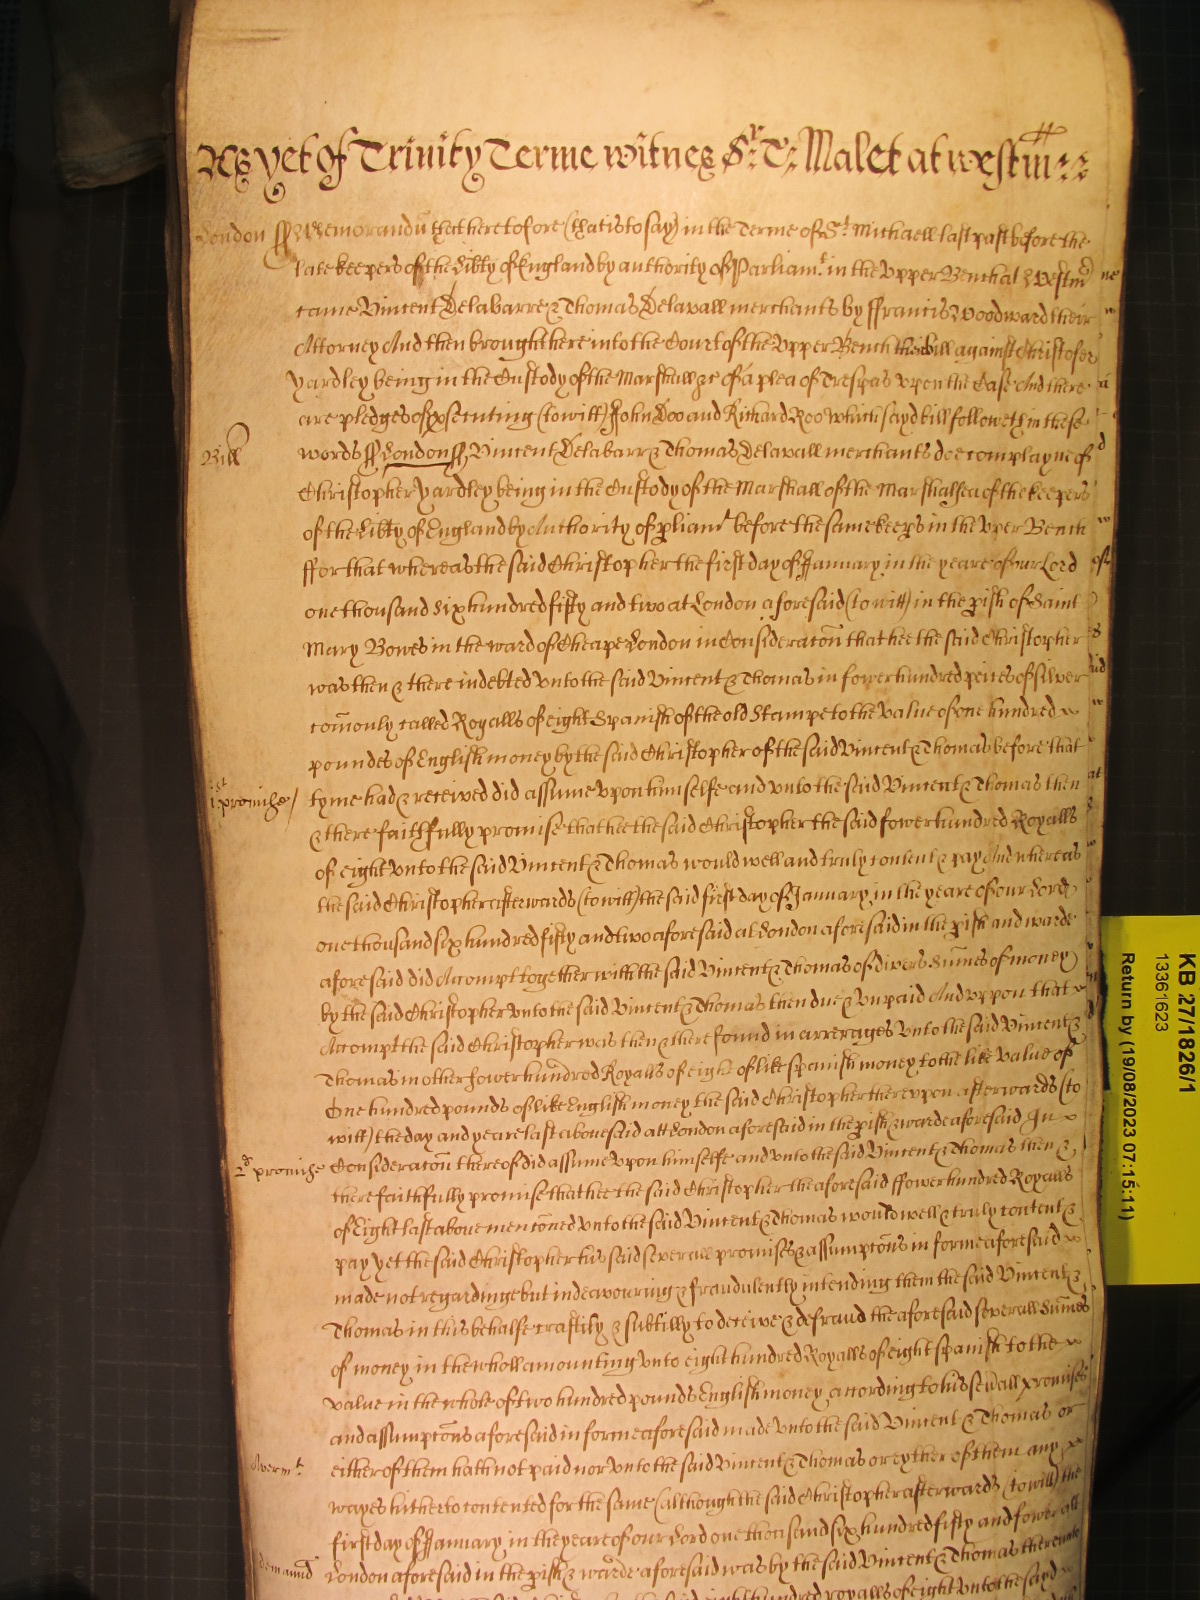 As yet of Trinity Terme witnes Sr. T: Malet at westm̃
London ss Memorandũ that heretofore (that is to say) in the Terme of St. Michaell last past before the
late keepers of the Libty of England by authority of Parliamt. in the Upper Bench at Westm̃
came Vincent Delabarre & Thomas Delavall merchants by ffrancis Woodward their
Attorney And then brought here into the Court of the Upper Bench their bill against Christofer
yardley being in the Custody of the Marshall &c of a plea of Trespas upon the Case And there
are pledges of psecuting (to witt) John Doo and Richard Roo which sayd bill followeth in these
Bill
words ss London ss, Vincent Delabarr & Thomas Delavall merchants doe complayne of
Christopher yardley being in the Custody of the Marshall of the Marshalsea of the keepers
of the Libty of England by Authority of pliamt before the same keeps in the vper Bench
ffor that whereas the said Christopher the first day of January in the yeare of our Lord
one thousand six hundred fifty and two at London aforesaid (to witt) in the pish of Saint
Mary Bowes in the ward of Cheape London in Consideratoñ that hee the said Christopher
was then & there indebted vnto the said Vincent & Thomas in fower hundred peices of silver
com̃only called Royalls of eight Spanish of the old Stampe to the value of one hundred
poundes of English money by the said Christopher of the said Vincent & Thomas before that
1st promise
tyme had & received did assume vpon himselfe and vnto the said Vincent & Thomas then
& there faithfully promise that hee the said Christopher the said fower hundred Royalls
of eight vnto the said Vincent & Thomas would well and truly content & pay And whereas
the said Christopher afterwards (to witt) the said first day of January in the yeare of our Lord
one thousand six hundred fifty and two aforesaid at London aforesaid in the pish and warde
aforesaid did Accompt together with the said Vincent & Thomas of divers Sum̃es of money
by the said Christopher vnto the said Vincent & Thomas then due & vnpaid And vppon that
Accompt the said Christopher was then & there found in arrerages vnto the said Vincent &
Thomas in other fower hundred Royalls of eight of like spanish money to the like value of
One hundred pounds of like English money the said Christopher therevpon afterwards (to
witt) the day and yeare last abovesaid att London aforesaid in the pish & warde aforesaid In
2d promise
Consideratoñ thereof did assume vpon himselfe and vnto the said Vincent & Thomas then &
there faithfully promise that hee the said Christopher the aforesaid ffower hundred Royalls
of Eight last above mentoñed vnto the said Vincent & Thomas would well & truly content &
pay yet the said Christopher his said severall promises & assumptoñs in forme aforesaid
made not regardinge but indeavouring & fraudulently intending them the said Vincent &
Thomas in this behalfe craftily & subtilly to deceive & defraud the aforesaid severall Sum̃es
of money in the wholl amounting vnto eight hundred Royalls of eight spanish to the
value in the whole of two hundred pounds English money according to his sevall promises
and assumptoñs aforesaid in forme aforesaid made vnto the said Vincent & Thomas or
either of them hath not paid nor vnto the said Vincent & Thomas or eyther of them any
Avermt.
wayes hitherto contented for the same (although the said Christopher afterwards (to witt) the
first day of January in the yeare of our Lord one thousand six hundred fifty and fower att
demaund
London aforesaid in the pish & warde aforesaid was by the said Vincent & Thomas thereunto
hundred royalls of eight vnto the sayd
KB 27/1826/1
13361623
Return by (19/08/2023 07:15:11)